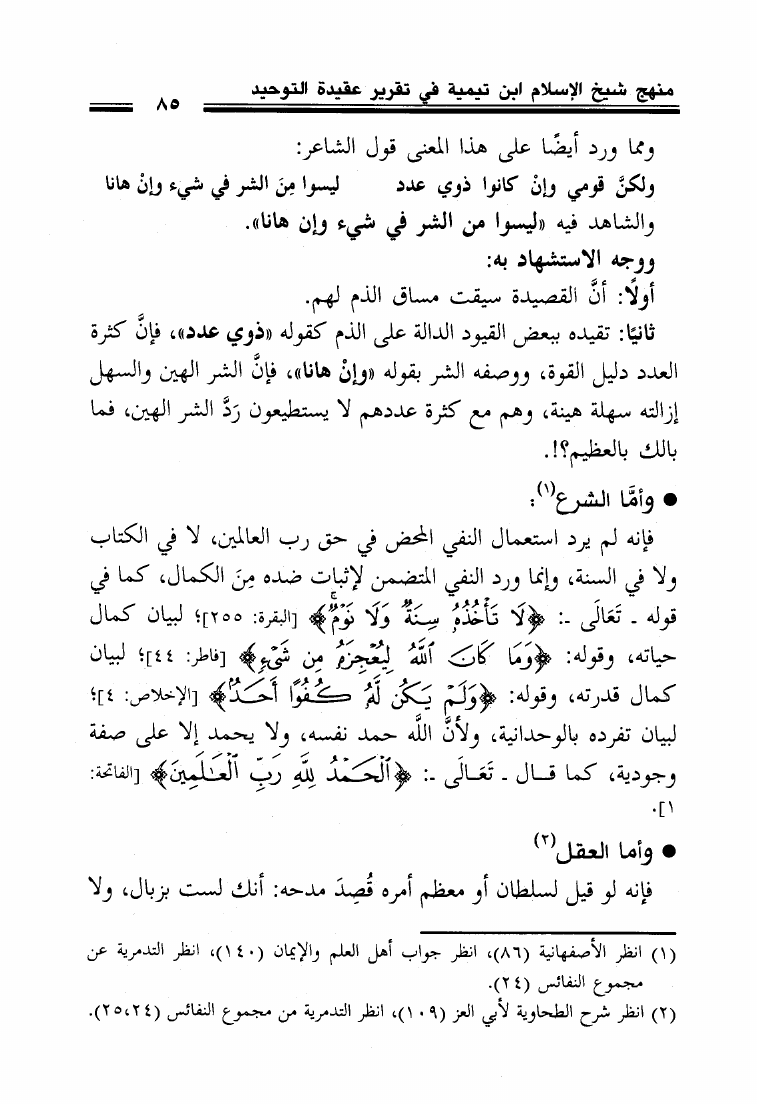 منهج شيخ الإسلام ابن تيمية في تقرير عقيدة التوحيد
٨٥
ومما ورد أيضًا على هذا المعنى قول الشاعر:
ولكنَّ قومي وإنْ كانوا ذوي عدد ليسوا مِنَ الشر في شيء وإنْ هانا
والشاهد فيه «ليسوا من الشر في شيء وإن هانا».
ووجه الاستشهاد به:
أولًا: أنَّ القصيدة سيقت مساق الذم لهم.
ثانيًا: تقيده ببعض القيود الدالة على الذم كقوله «ذوي عدد»، فإنَّ كثرة
العدد دليل القوة، ووصفه الشر بقوله «وإنْ هانا»، فإنَّ الشر الهين والسهل
إزالته سهلة هينة، وهم مع كثرة عددهم لا يستطيعون رَدَّ الشر الهين، فما
بالك بالعظيم؟!.
● وأمَّا الشرع(١):
فإنه لم يرد استعمال النفي المحض في حق رب العالمين، لا في الكتاب
ولا في السنة، وإنما ورد النفي المتضمن لإثبات ضده مِنَ الكمال، كما في
قوله ـ تَعَالَى ـ: ﴿لَا تَأْخُذُهُۥ سِنَةٌ وَلَا نَوْمٌ﴾ [البقرة: ٢٥٥]؛ لبيان كمال
حياته، وقوله: ﴿وَمَا كَانَ ٱللَّهُ لِيُعْجِزَهُۥ مِن شَىْءٍ﴾ [فاطر: ٤٤]؛ لبيان
كمال قدرته، وقوله: ﴿وَلَمْ يَكُن لَّهُۥ كُفُوًا أَحَدٌۢ﴾ [الإخلاص: ٤]؛
لبيان تفرده بالوحدانية، ولأنَّ اللَّه حمد نفسه، ولا يحمد إلا على صفة
وجودية، كما قـال ـ تَعَـالَى ـ: ﴿ٱلْحَمْدُ لِلَّهِ رَبِّ ٱلْعَٰلَمِينَ﴾ [الفاتحة:
١].
● وأما العقل(٢)
فإنه لو قيل لسلطان أو معظم أمره قُصِدَ مدحه: أنك لست بزبال، ولا
(١) انظر الأصفهانية (٨٦)، انظر جواب أهل العلم والإيمان (١٤٠)، انظر التدمرية عن
مجموع النفائس (٢٤).
(٢) انظر شرح الطحاوية لأبي العز (١٠٩)، انظر التدمرية من مجموع النفائس (٢٥،٢٤).